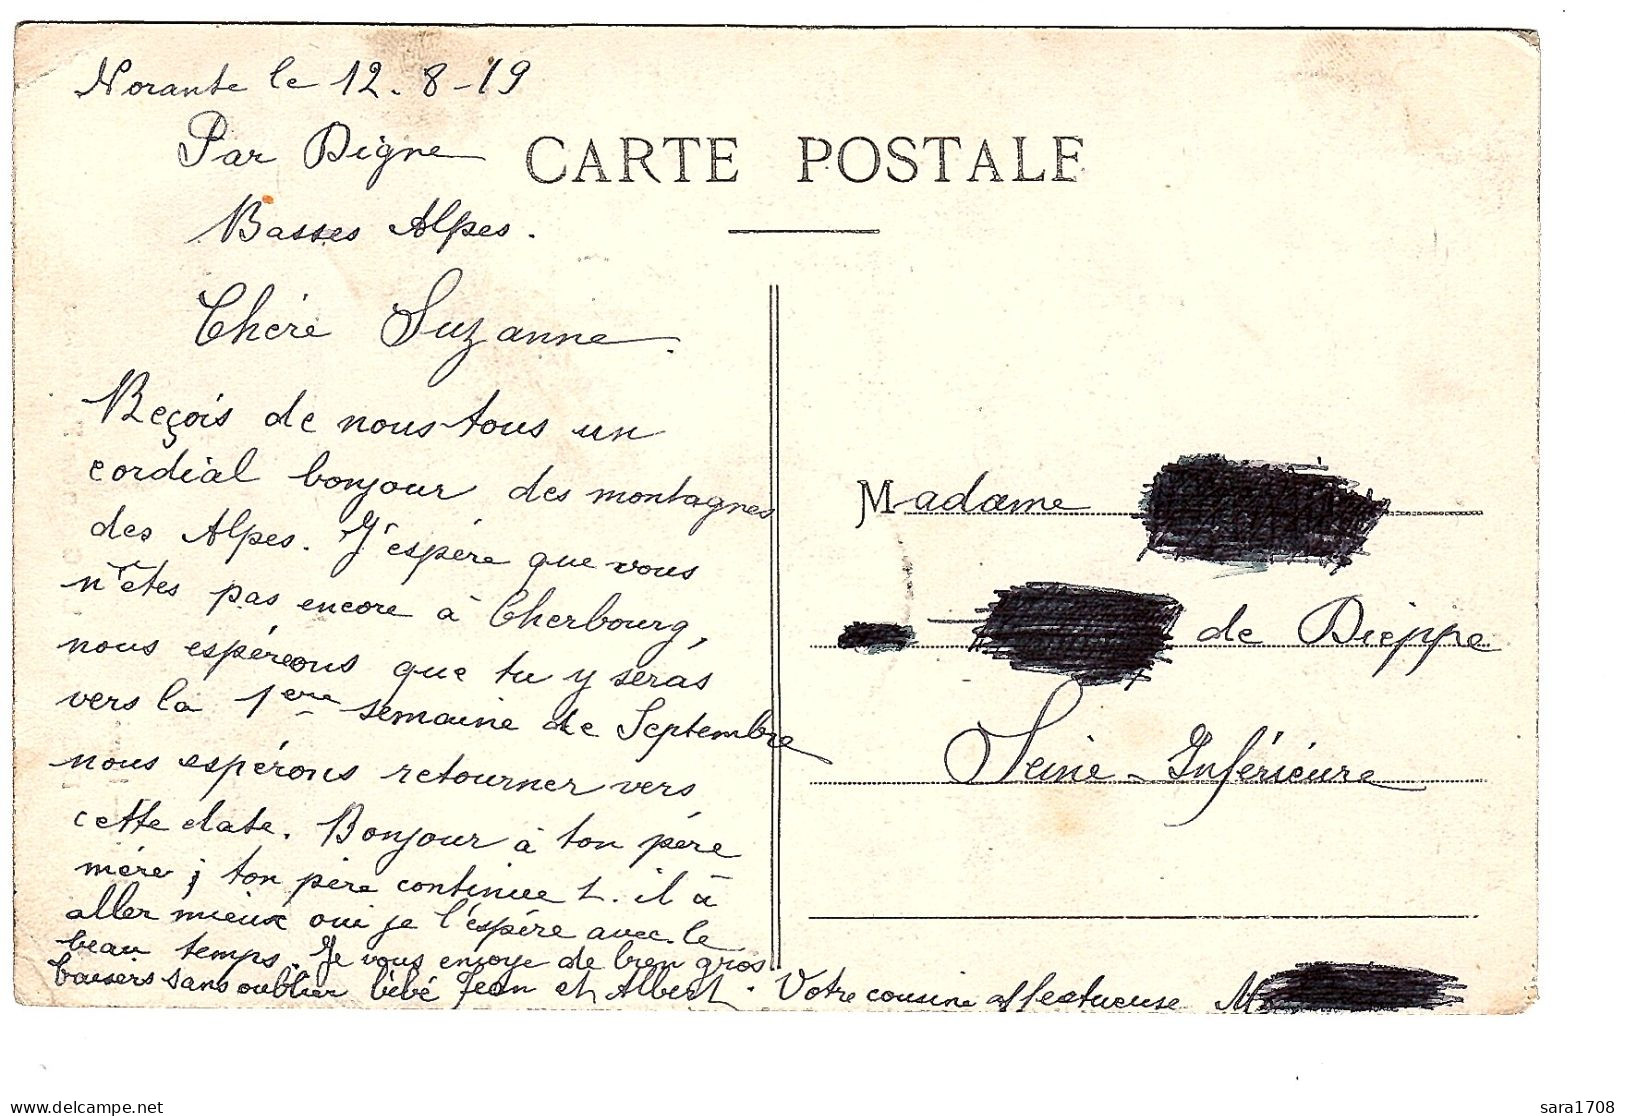 Norante le 12-8-19
Par Digne
Basses Alpes.
CARTE POSTALE
Chère Suzanne.
Reçois de nous tous un
cordial bonjour des montagnes
des Alpes. J'espère que vous
n'êtes pas encore à Cherbourg,
nous espéreons que tu y seras
vers la 1ère semaine de Septembre
nous espérons retourner vers
cette date. Bonjour à ton père
mère ; ton père continue t. il à
aller mieux oui je l'espère avec le
beau temps. Je vous envoye de bien gros
baisers sans oublier bébé Jean et Albert. Votre cousine affectueuse M
Madame
de Dieppe
Seine-Inférieure
delcampe.net
sara1708